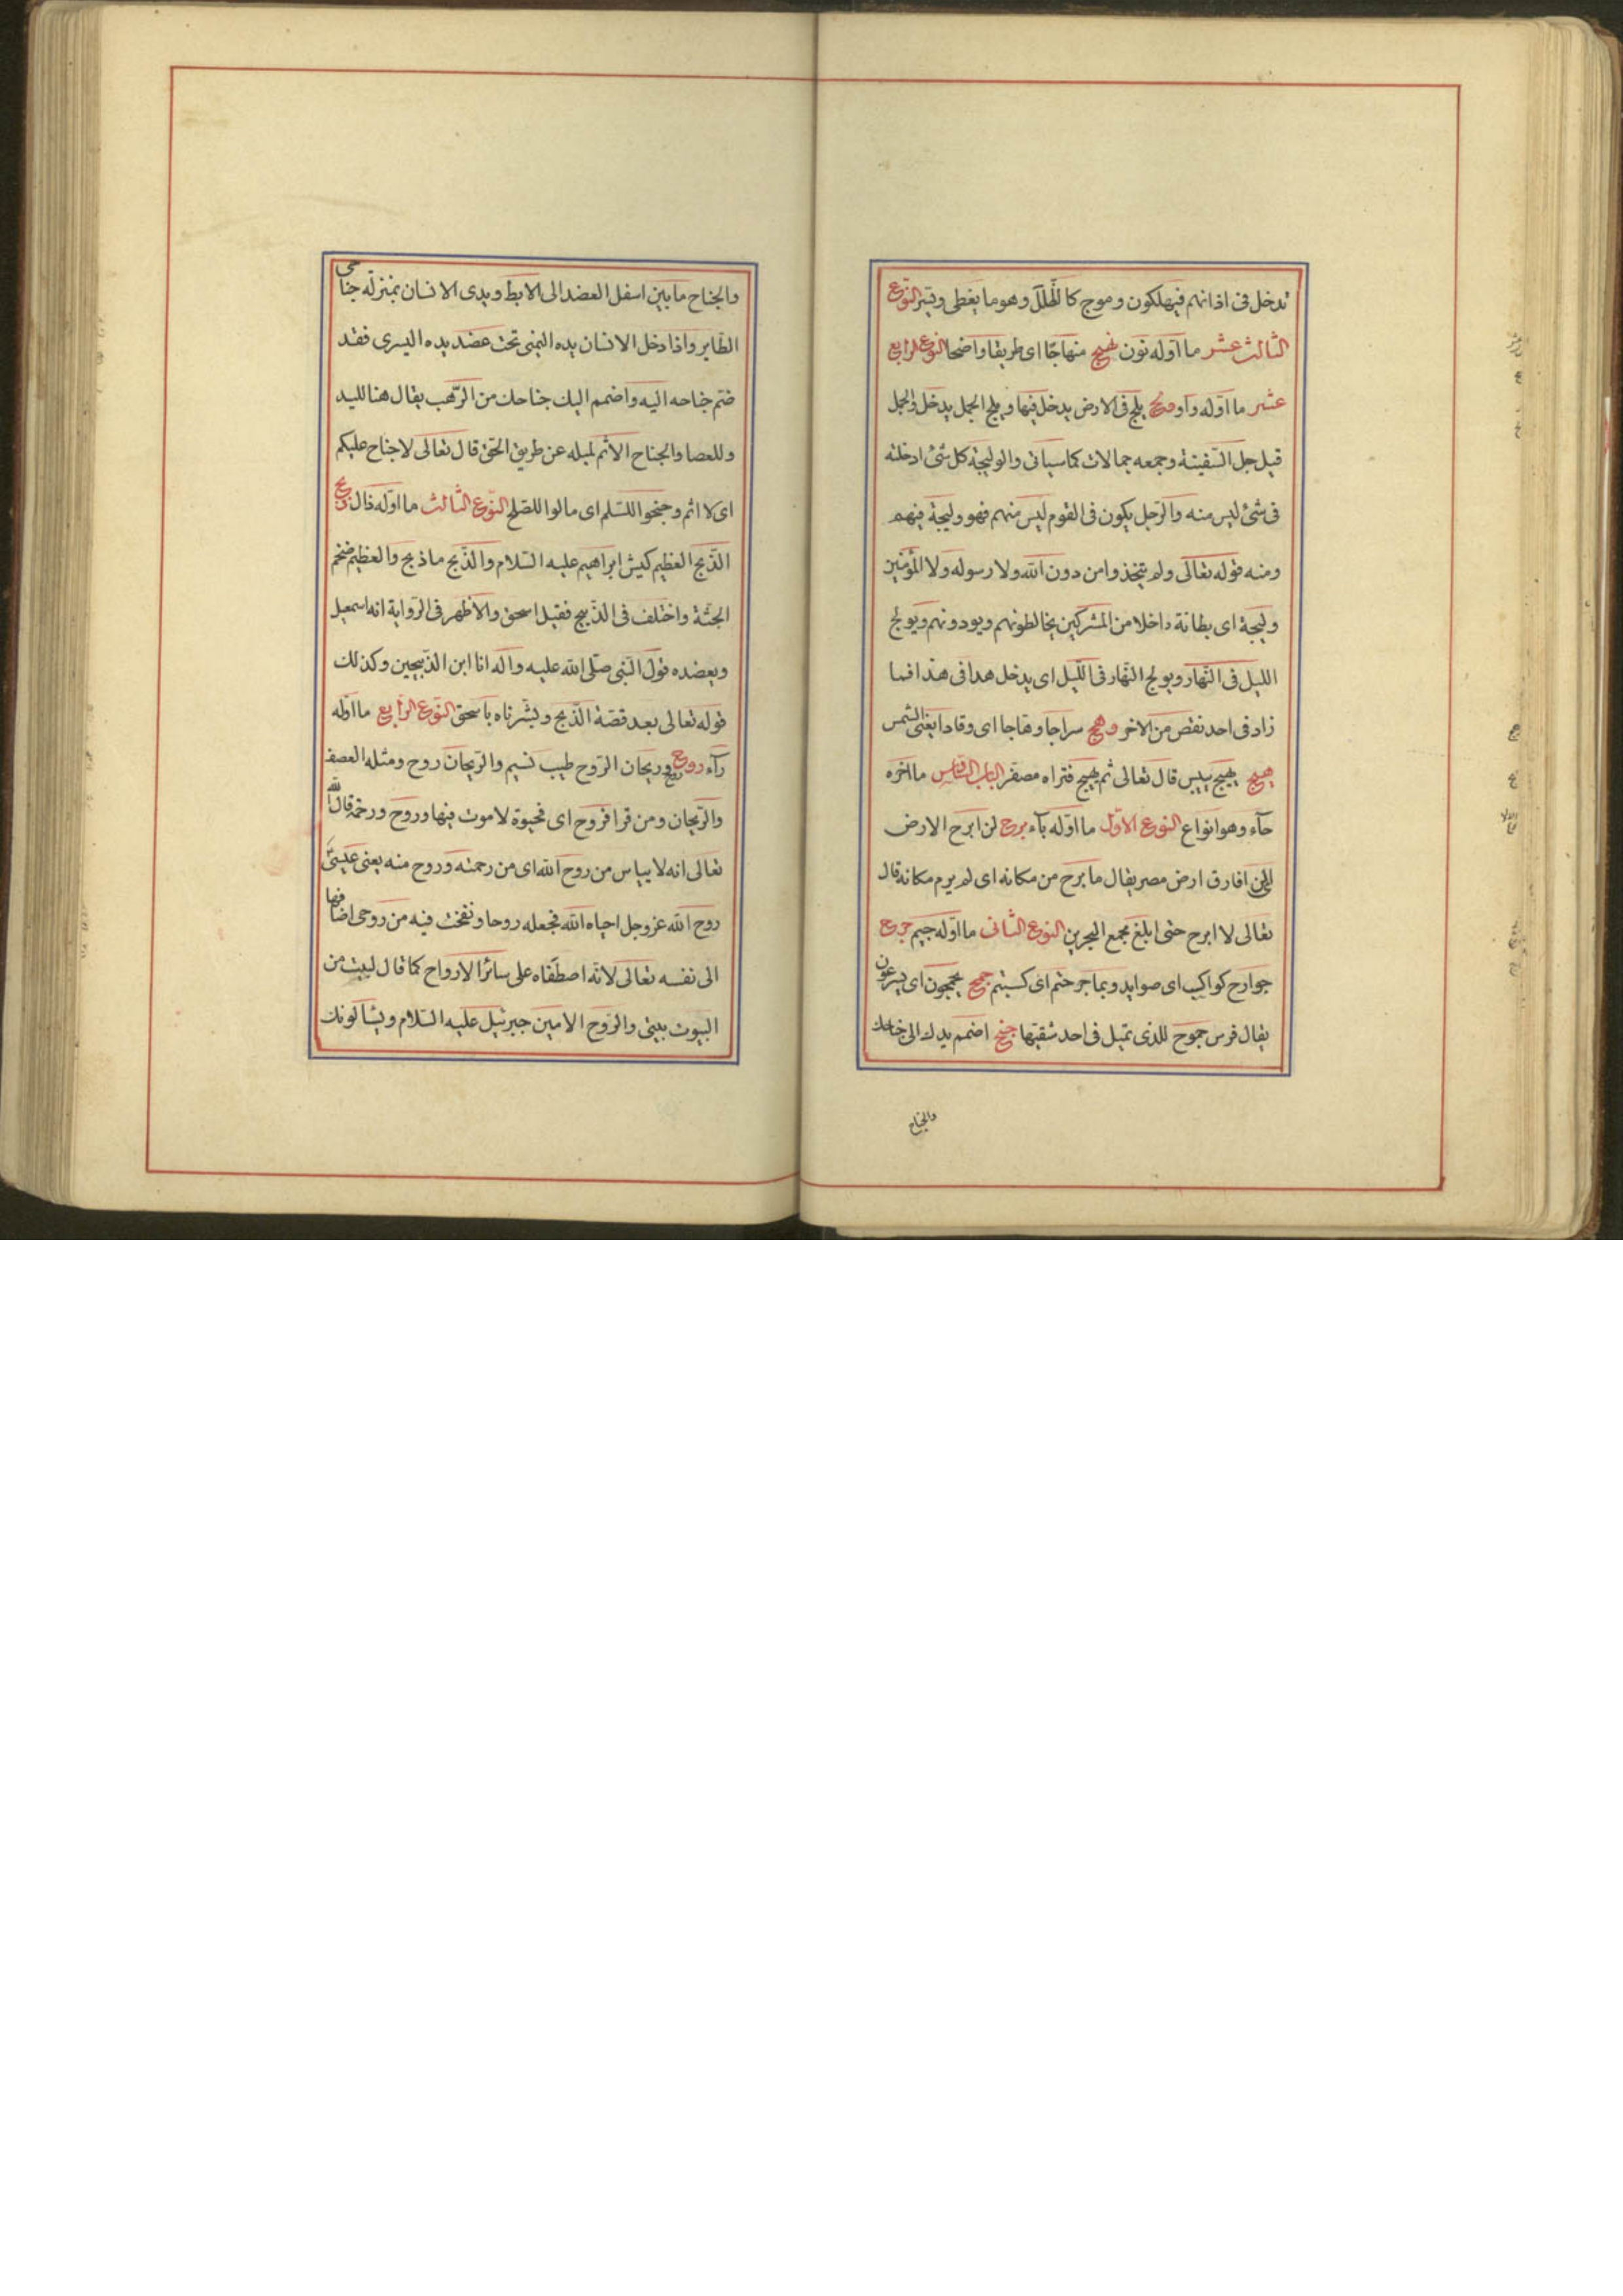 تدخل فى اذانهم فيهلكون وموج كالظلل وهو ما يغطى ويستر النوع
الثالث عشر ما اوله نون نهج منهاجا اى طريقا واضحا النوع الرابع
عشر ما اوله واو ولج يلج فى الارض يدخل فيها ويلج الجمل يدخل والجمل
قيل جل السفينة وجمعه جمالات كما سياتى والوليجة كل شئ ادخلته
فى شئ ليس منه والرجل يكون فى القوم ليس منهم فهو وليجة فيهم
ومنه قوله تعالى ولم يتخذوا من دون الله ولا رسوله ولا المؤمنين
وليجة اى بطانة داخلا من المشركين يخالطونهم ويودونهم ويولج
الليل فى النهار ويولج النهار فى الليل اى يدخل هذا فى هذا فما
زاد فى احد نقص من الاخر وهج سراجا وهاجا اى وقادا يعنى الشمس
هيج يهيج ييبس قال تعالى ثم يهيج فتراه مصفر الباب ما اخره
حآء وهو انواع النوع الاول ما اوله بآء برح لن ابرح الارض
افارق ارض مصر يقال ما برح من مكانه اى لم يرم مكانه قال
تعالى لا ابرح حتى ابلغ مجمع البحرين النوع الثانى ما اوله جيم جرح
جوارح كواكب اى صوايد وبما جرحتم اى كسبتم جمح يجمحون اى يسرعون
يقال فرس جموح للذى تميل فى احد شقيها جنح اضمم يدك الى جناحك
والجناح
والجناح ما بين اسفل العضد الى الابط ويدى الانسان بمنزلة جناحى
الطاير واذا دخل الانسان يده اليمنى تحت عضد يده اليسرى فقد
ضم جناحه اليه واضمم اليك جناحك من الرهب يقال هنا لليد
وللعصا والجناح الاثم لميله عن طريق الحق قال تعالى لا جناح عليكم
اى لا اثم وجنحوا للسلم اى مالوا للصلح النوع الثالث ما اوله ذال ذبح
الذبح العظيم كبش ابراهيم عليه السلام والذبح ما ذبح والعظيم ضخم
الجثة واختلف فى الذبيح فقيل اسحق والاظهر فى الرواية انه اسمعيل
ويعضده قول النبى صلى الله عليه واله انا ابن الذبيحين وكذلك
قوله تعالى بعد قصة الذبح وبشرناه باسحق النوع الرابع ما اوله
رآء روح فروح وريحان الروح طيب نسيم والريحان روح ومثله العصف
والريحان ومن قرا فروح اى فحيوة لا موت فيها وروح ورحمة قال الله
تعالى انه لا يياس من روح الله اى من رحمته وروح منه يعنى عيسى
روح الله عز وجل احياه الله فجعله روحا ونفخت فيه من روحى اضافها
الى نفسه تعالى لانه اصطفاه على سائر الارواح كما قال لبيت من
البيوت بيتى والروح الامين جبرئيل عليه السلام ويسالونك